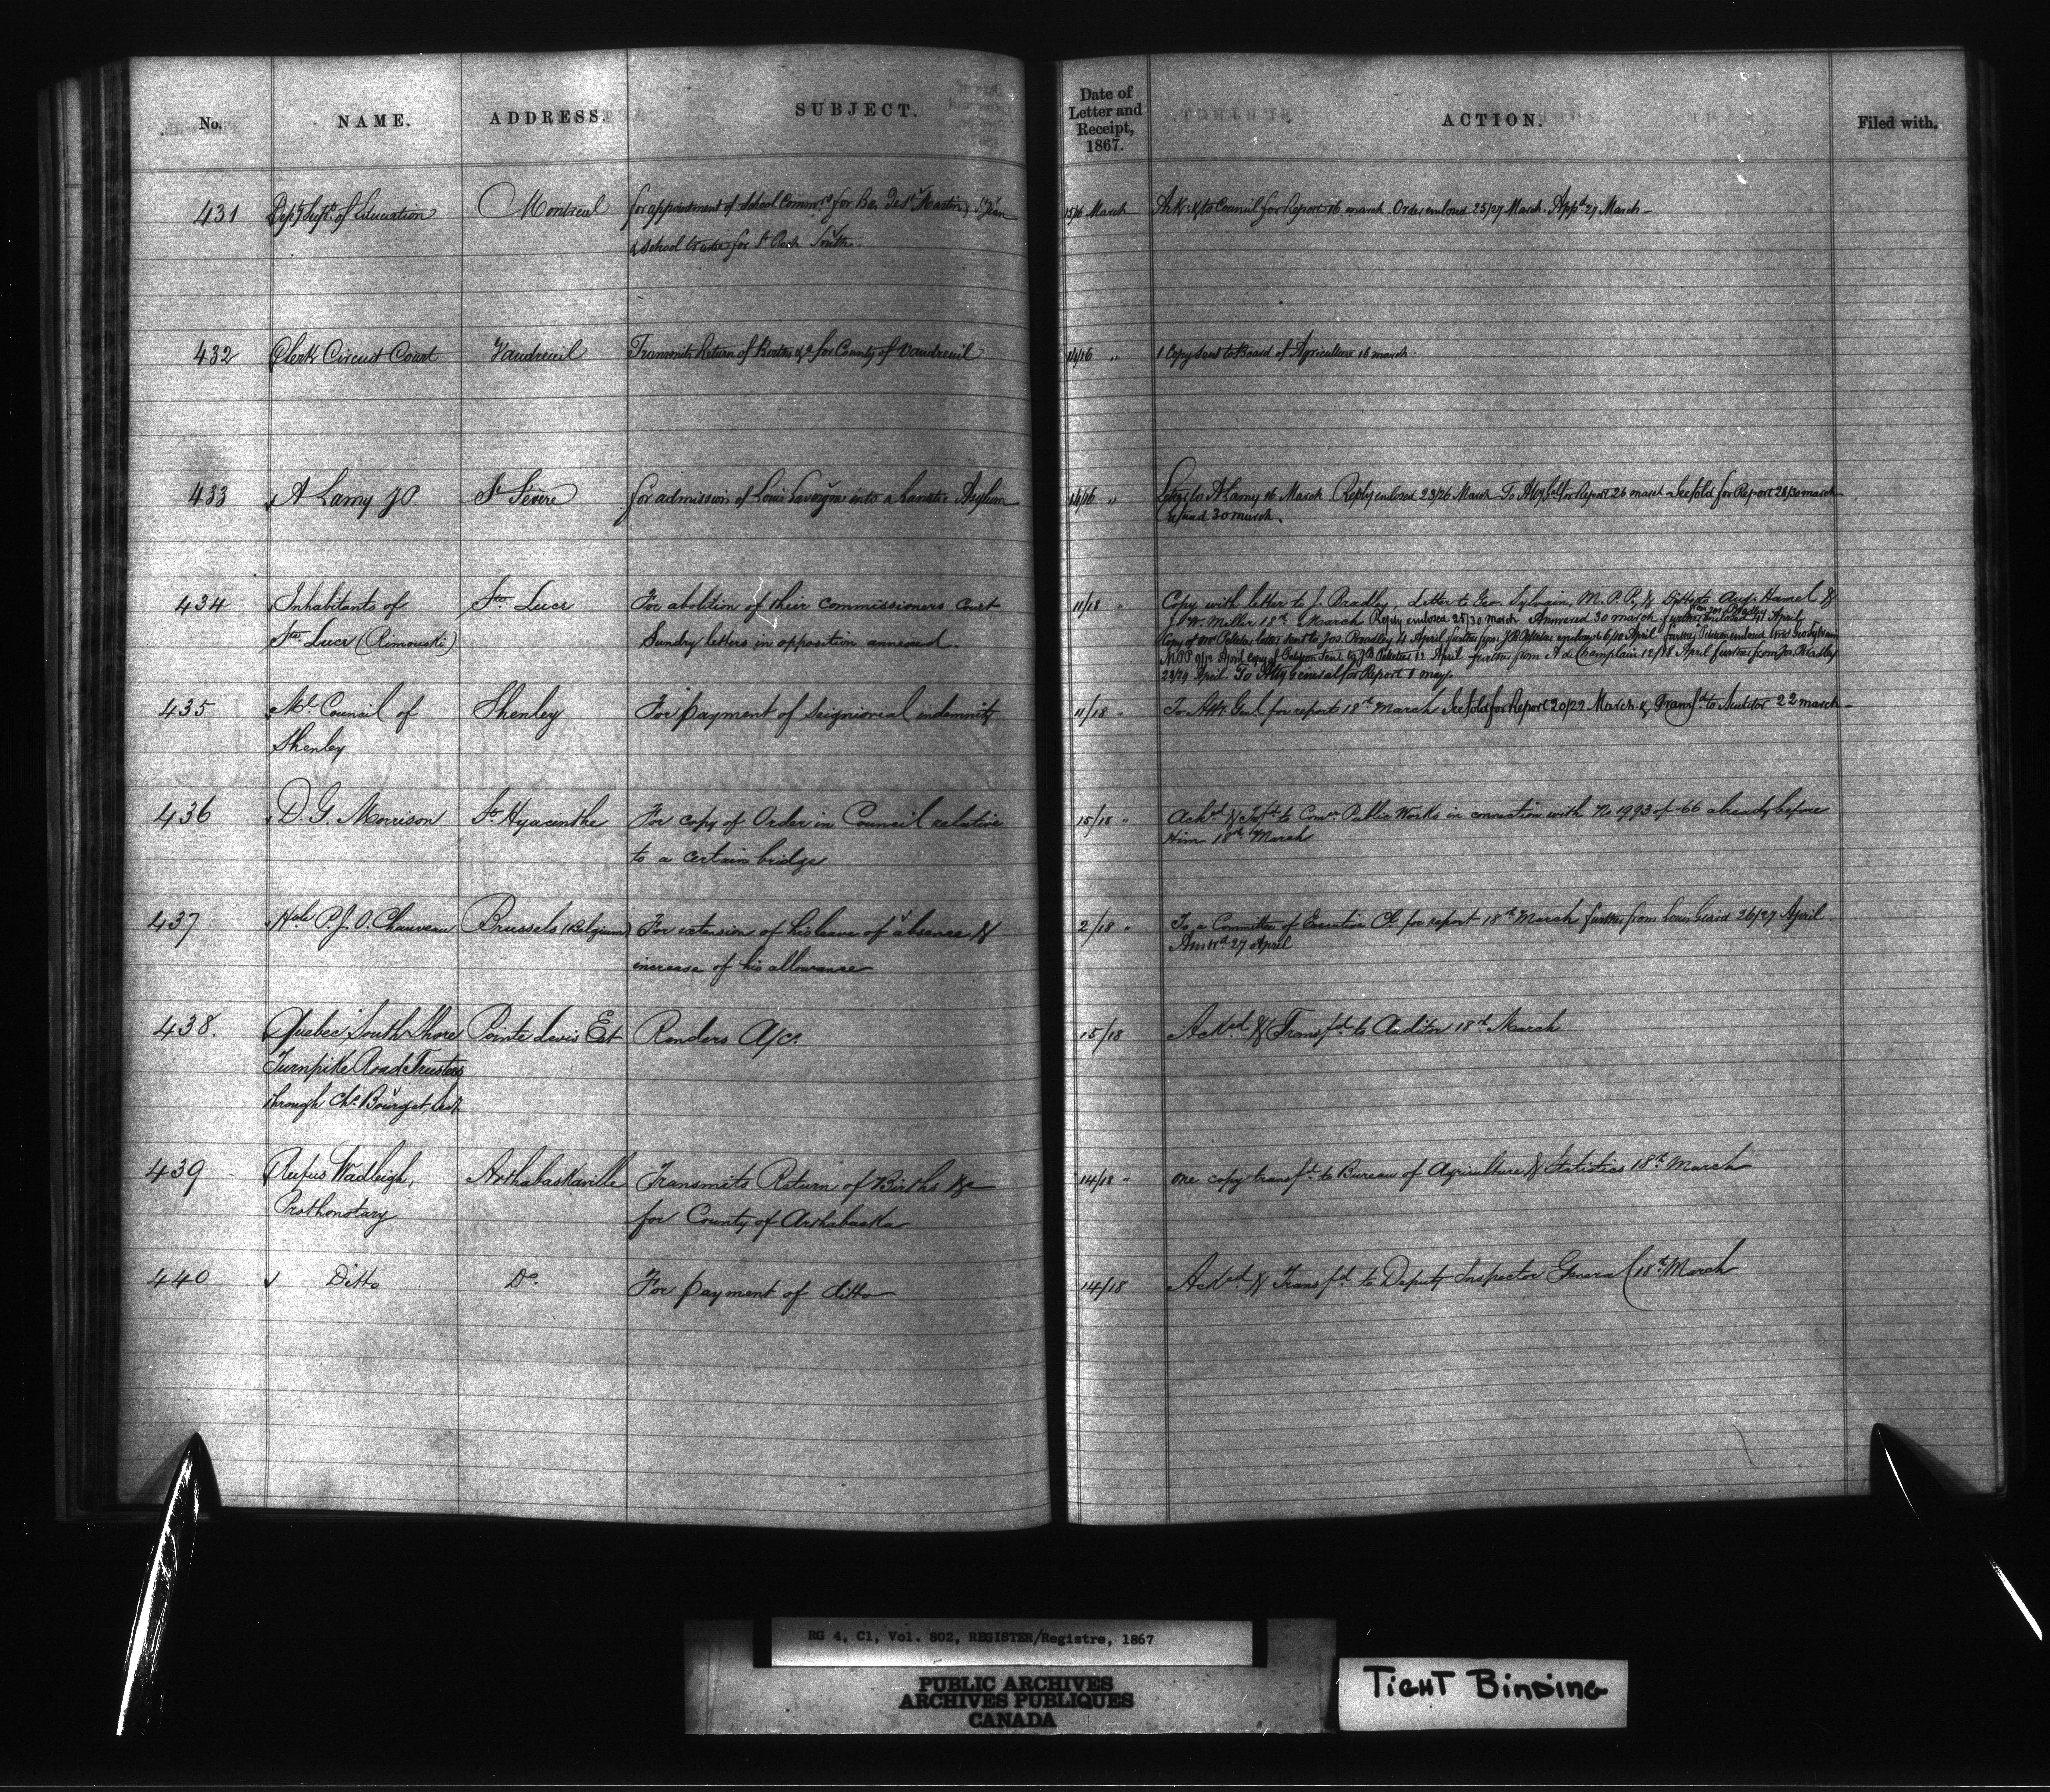 No. NAME. ADDRESS. SUBJECT. Date of Letter and Receipt, 1867. ACTION. Filed with.
431 Depy Supt. of Education Montreal for appointment of School Commrs for
& School trustee for St Roch South 15/16 March Ack. & to Council for Report 16 march. Order enclosed 25/27 March. Appd 27 March
432 Clerk Circuit Court Vaudreuil Transmits Return of Births &c for County of Vaudreuil 14/16 " 1 Copy sent to Board of Agriculture 16 march
433 A Lamy JP St Sévère for admission of Louis Lavergne into a Lunatic Asylum 14/16 " Letter to A Lamy 16 March Reply enclosed 23/26 March To Atty Genl for Report 26 march See fold for Report 28/30 march
30 march.
434 Inhabitants of Ste. Luce For abolition of their commissioners Court 11/18 " Copy with letter to J. Bradley, Letter to Geo Sylvain, M.P.P., & Ditto to Aug. Hamel &
Ste. Luce (Rimouski) Sundry letters in opposition annexed. J. W. Miller 18th March Reply enclosed 25/30 march Answered 30 march further enclosed 4 April
from Jos. Bradley
letter sent to Jos. Bradley 4 April further from enclosed 6/10 April further Petition enclosed
MPP 9/12 April copy of Petition sent to 12 April further from A de Champlain 12/18 April further from Jos. Bradley
23/29 April. To Atty General for Report 1 may.
435 Ml. Council of Shenley For payment of Seigniorial indemnity 11/18 " To Att. Genl. for report 18th March See fold for Report 20/22 March & Transfd to Auditor 22 march
Shenley
436 D. G. Morrison St Hyacinthe For copy of Order in Council relative 15/18 " Ackd & Tsfd to Comr. Public Works in connection with No 1993 of -66 already before
to a certain bridge Him 18th March
437 Hble P.J.O. Chauveau Brussels (Belgium) For extension of his leave of absence & 2/18 " To a Committee of Executive Cl. for report 18th March further from 26/27 April
increase of his allowance Answd. 27 April
438. Quebec South Shore Pointe Levis Est Renders A/cs. 15/18 Acked & Transfd. to Auditor 18th March
Turnpike Road Trustees
through Chs Bourget Sect
439 Rufus Wadleigh, Arthabaskaville Transmits Return of Births &c 14/18 " one copy transfd. to Bureau of Agriculture & Statistics 18th March
Prothonotary for County of Arthabaska
440 Ditto Do. For payment of ditto 14/18 Acked & Transfd. to Deputy Inspector General 18th March
RG 4, C1, Vol. 802, REGISTER/Registre, 1867
PUBLIC ARCHIVES
ARCHIVES PUBLIQUES
CANADA
TIGHT BINDING